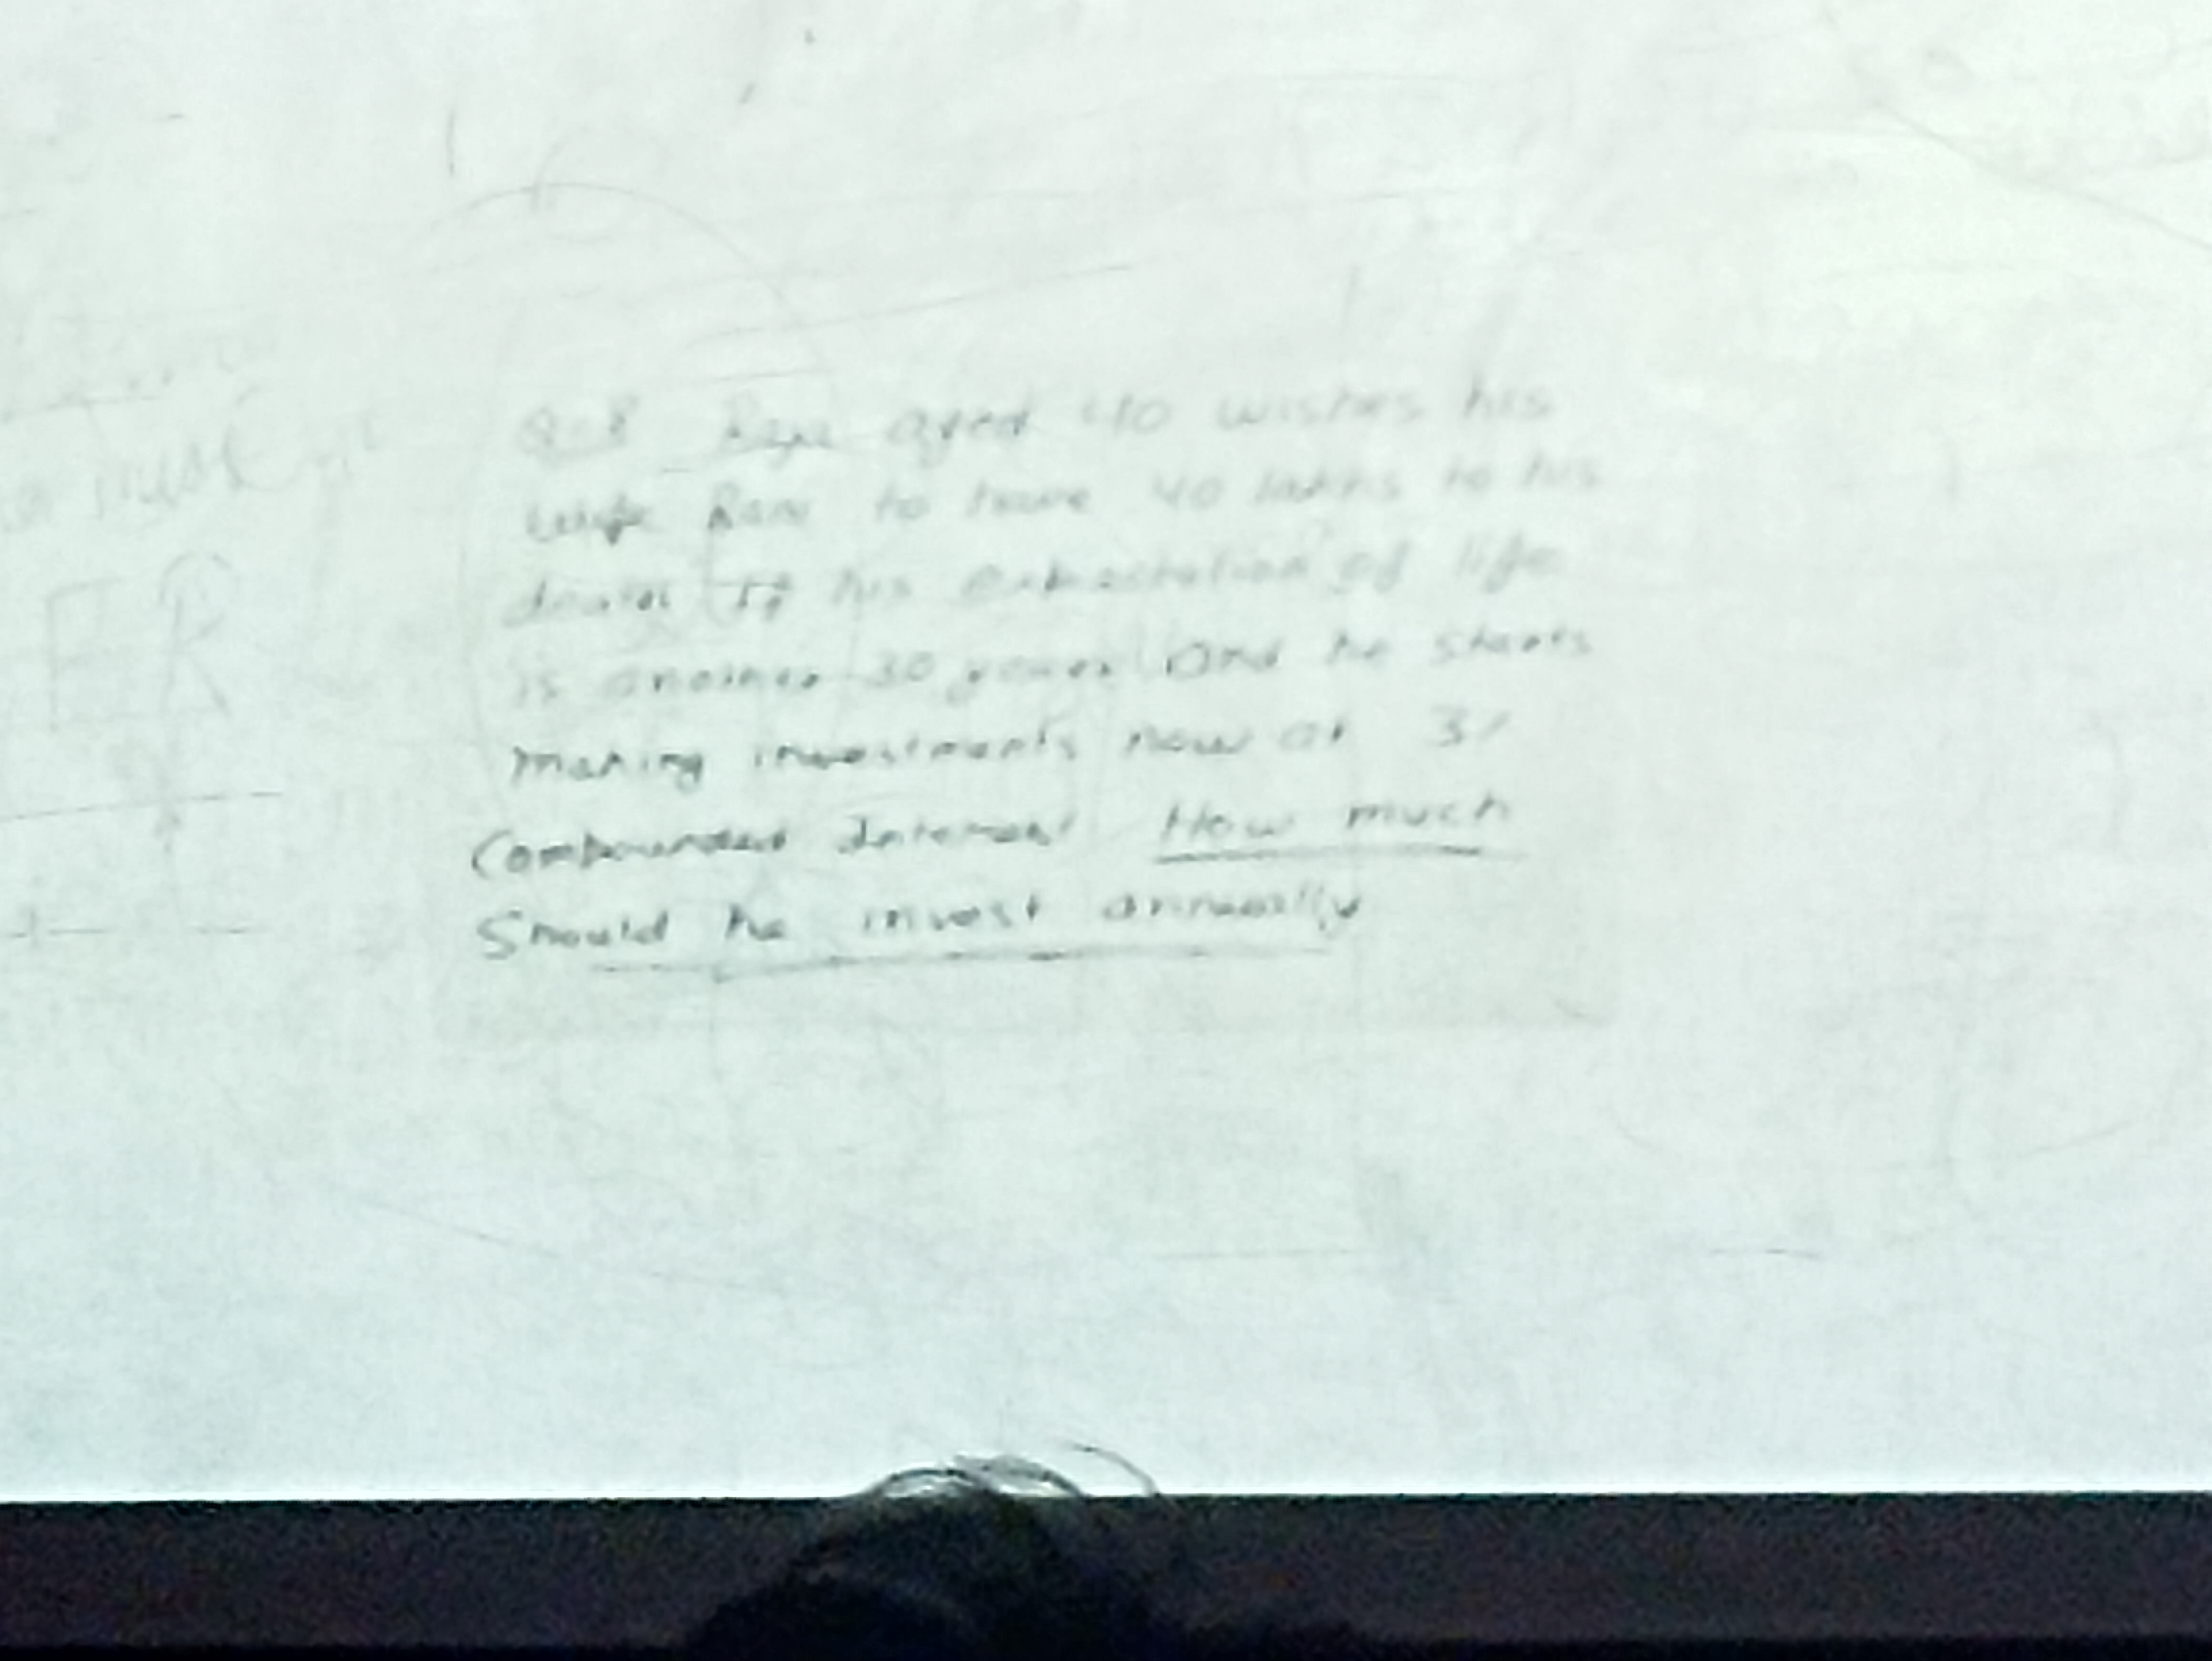 aged 40 wishes his
wife Rani to have 40 lakhs to his
death If his expectation of life
is another 30 years And he starts
making investments now at 3%
Compounded Interest How much
Should he invest annually